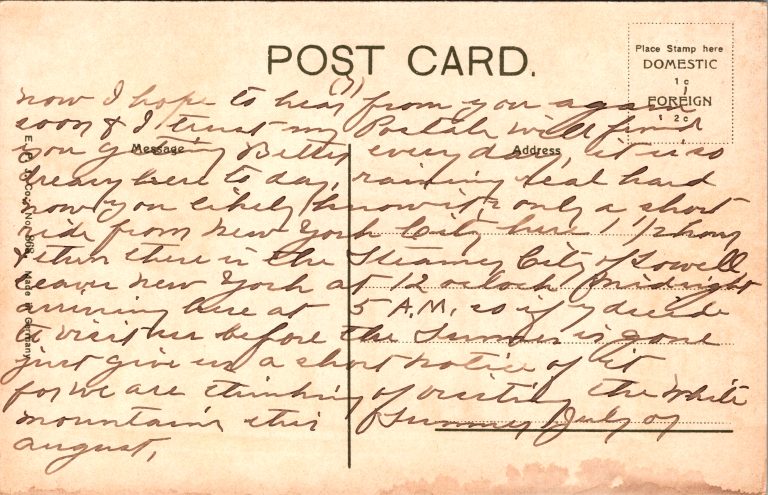 POST CARD.
Place Stamp here
DOMESTIC
1c
FOREIGN
2c
Message
Address
Made in Germany
(3)
now I hope to hear from you again
soon & I trust my Postals will find
you getting Better every day, it is so
dreary here to day, raining real hard
now you likely know it's only a short
ride from New York City here 1 1/2 hour
& then there is the Steamer City of Lowell
leaves New York at 12 oclock midnight
arriving here at 5 A.M. so if y decide
to visit us before the Summer is gone
just give us a short notice of it
for we are thinking of visiting the White
mountains this Summer July or
august,